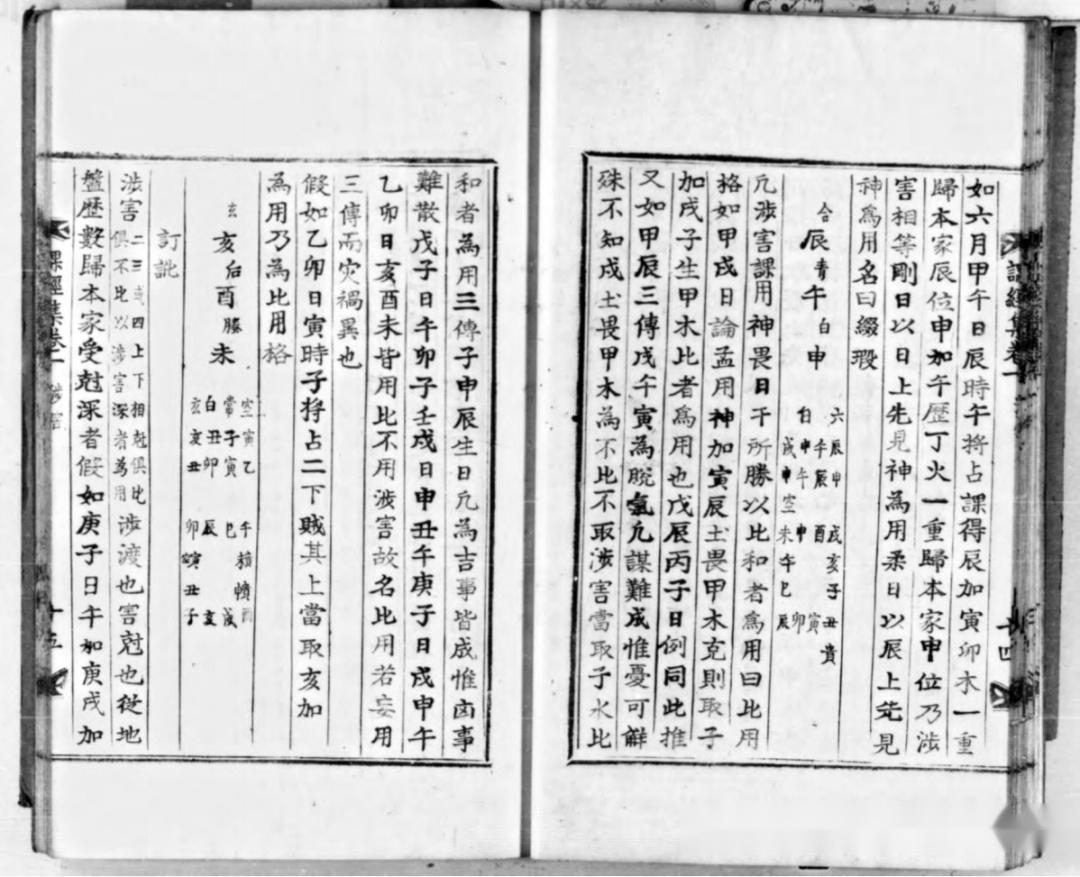 如六月甲午日辰時午将占課得辰加寅卯木一重
歸本家辰位申加午歷丁火一重歸本家申位乃涉
害相等剛日以日上先見神為用柔日以辰上先見
神為用名曰綴瑕
合辰青午白申
六辰申 戌亥子丑貴
午辰 酉 寅
白申午 申 卯
戌申空未午巳辰
凡涉害課用神畏日干所勝以比和者為用曰比用
格如甲戌日論孟用神加寅辰土畏甲木克則取子
加戌子生甲木比者為用也戊辰丙子日例同此推
又如甲辰三傳戌午寅為脫氣凡謀難成惟憂可觧
殊不知戌土畏甲木為不比不取涉害當取子水比
和者為用三傳子申辰生日凡為吉事皆成惟凶事
難散戊子日午卯子壬戌日申丑午庚子日戌申午
乙卯日亥酉未皆用比不用涉害故名比用若妄用
三傳而灾禍異也
假如乙卯日寅時子将占二下賊其上當取亥加
為用乃為比用格
玄亥后酉螣未
空寅乙
常子寅 巳午
白丑卯 辰
玄亥丑 卯 丑子
訂訛
涉害二三四上下相尅俱比
俱不比以涉害深者為用涉渡也害尅也從地
盤歷數歸本家受尅深者假如庚子日午加庚戌加
課經集卷一